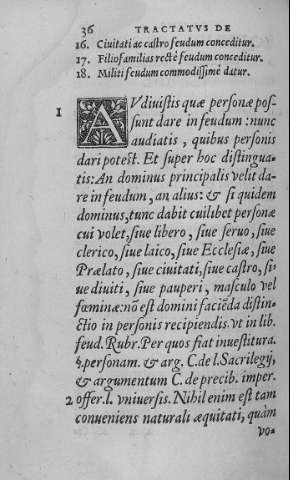 36 TRACTATVS DE
16. Ciuitati ac castro feudum conceditur.
17. Filiofamilias rectè feudum conceditur.
18. Militi feudum commodissimè datur.
1 AVdiuistis quæ personæ pos-
sunt dare in feudum : nunc
audiatis, quibus personis
dari potest. Et super hoc distingua-
tis: An dominus principalis velit da-
re in feudum, an alius: & si quidem
dominus, tunc dabit cuilibet personæ
cui volet, siue libero, siue seruo, siue
clerico, siue laico, siue Ecclesiæ, siue
Prælato, siue ciuitati, siue castro, si-
ue diuiti, siue pauperi, masculo vel
fœminæ: nō est domini faciēda distin-
ctio in personis recipiendis. vt in lib.
feud. Rubr. Per quos fiat inuestitura.
§. personam. & arg. C. de l. Sacrilegij,
& argumentum C. de precib. imper.
2 offer. l. vniuersis. Nihil enim est tam
conueniens naturali æquitati, quàm
vo-